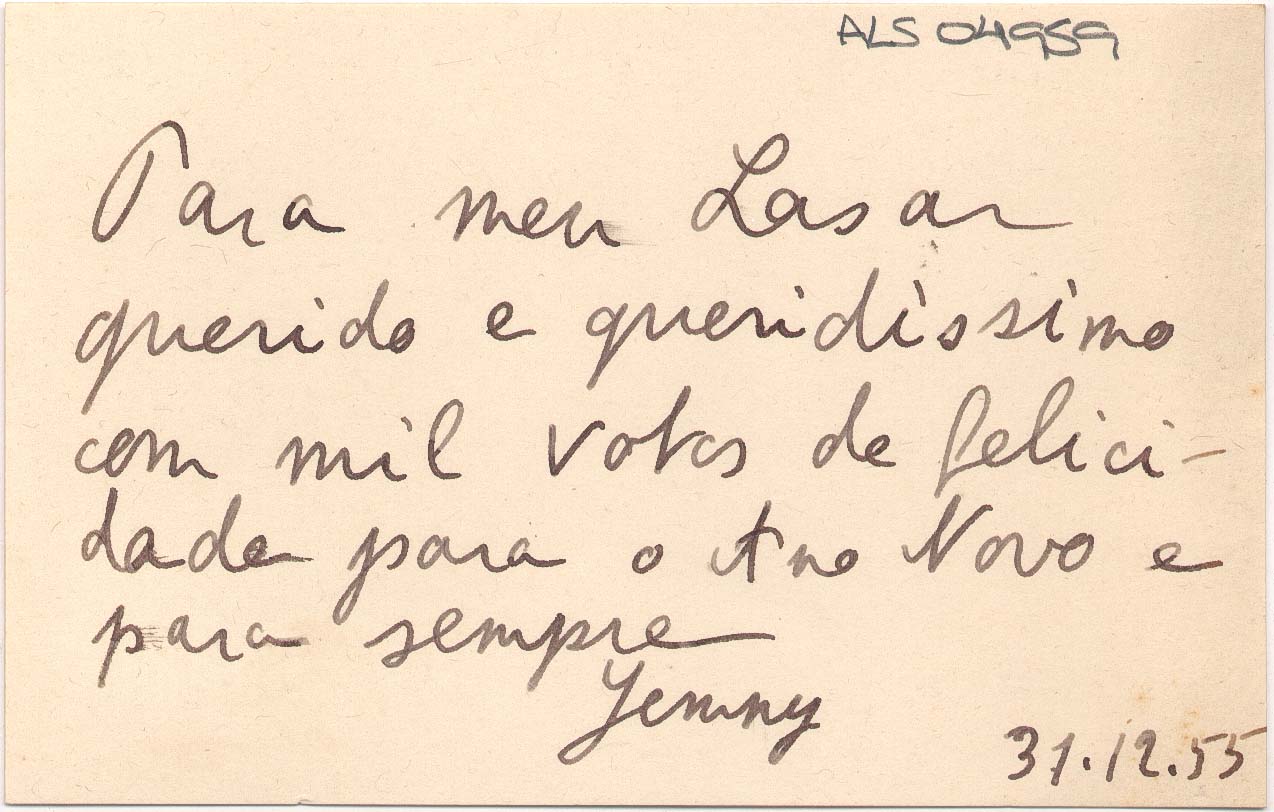 ALS 04959
Para meu Lasar
querido e queridissimo
com mil votos de felici-
dade para o Ano Novo e
para sempre
Jenny
31.12.55